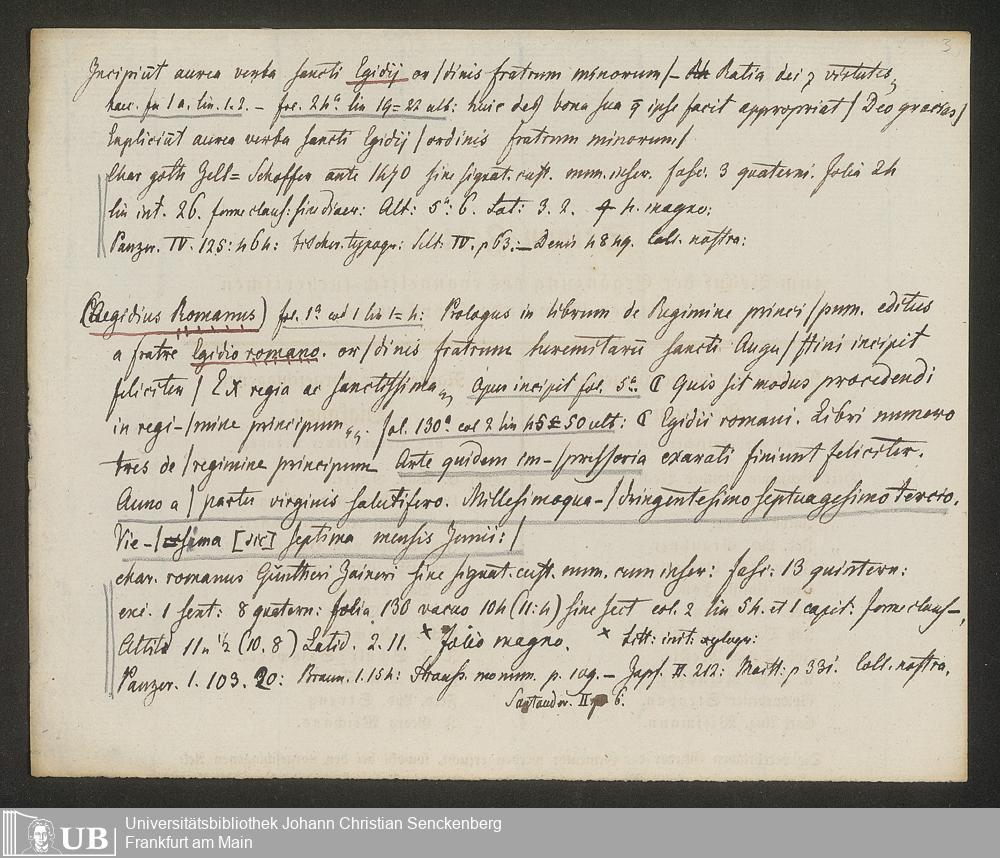 3
Incipiūt aurea verba sancti Egidij or/dinis fratrum minorum/– Ratia dei ⁊ virtutes,
haec fa 1 a. lin. 1.2. – foe. 24ᵃ lin 19=22 ult: huic ded bona sua q̄ ipse facit appropriat / Deo gracias /
Expliciūt aurea verba sancti Egidij / ordinis fratrum minorum /
Char goth Zell= Schoffer ante 1470 sine signat. cust. num. inscr. fasc. 3 quaterni. folia 24
lin int. 26. forme claus: sine divers: Alt: 5": 6. Lat: 3. 2. 4. magno:
Panzer. IV. 125: 464: Fischer. typogr: Selt: IV. p 63. – Denis 4849. Coll. nostra:
(Aegidius Romanus) foe. 1ᵃ col 1 lin 1=4: Prologus in librum de Regimine princi/pum. editus
a fratre Egidio romano. or/dinis fratrum heremitarū sancti Augu/stini incipit
feliciter / EX regia ac sanctissima„ Opus incipit fol. 5ᵃ. ¶ Quis sit modus procedendi
in regi-/mine principum„. fol. 130ᵃ col 2 lin 45=50 ult: ¶ Egidii romani. Libri numero
tres de / regimine principum Arte quidem im-/pressoria exarati finiunt feliciter.
Anno a / partu virginis salutifero. Millesimoqua-/dringentesimo septuagesimo tercio.
Vie-/sima [sic] septima mensis Junii: /
char. romanus Güntheri Zaineri sine signat. cust. num. cum inscr: fasc: 13 quintern:
exc. 1 sext: 8 quatern: folia 130 vacuo 104 (11:4) sine sect col. 2 lin 54. et 1 capit: forme claus-,
Altitd 11 ½ (10. 8) Latid. 2. 11. × folio magno. × Litt: init: xylogr:
Panzer. 1. 103. 20: Braun. 1. 154: Strauss. monum. p. 109. – Zapf. II. 212: Maitt: p 331. Coll. nostra.
Santander. II p 6.
UB
Universitätsbibliothek Johann Christian Senckenberg
Frankfurt am Main